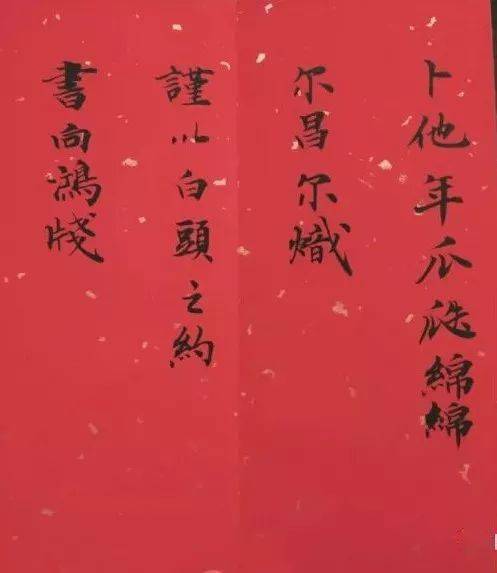 卜他年瓜瓞綿綿
尔昌尔熾
謹以白頭之約
書向鴻牋